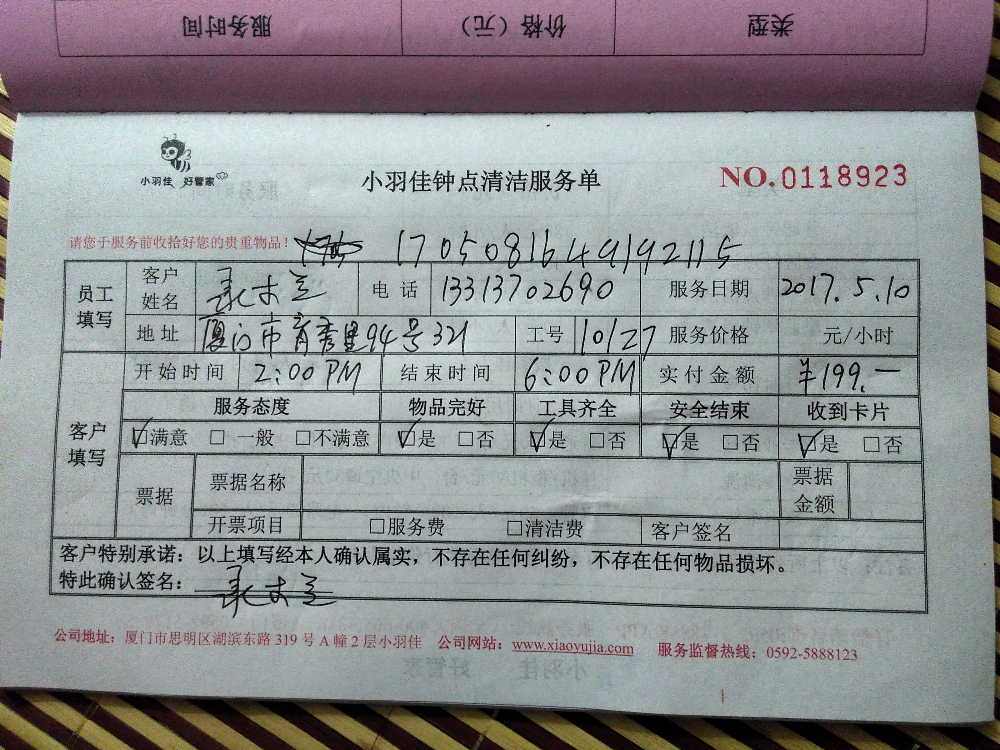 类型 价格（元） 服务时间
小羽佳 好管家
小羽佳钟点清洁服务单
NO.0118923
请您于服务前收拾好您的贵重物品！ 1705081649192115
员工填写 客户姓名 电话 13313702690 服务日期 2017.5.10
地址 厦门市育秀里94号321 工号 10127 服务价格 元/小时
客户填写 开始时间 2:00PM 结束时间 6:00PM 实付金额 ¥199.一
服务态度 物品完好 工具齐全 安全结束 收到卡片
☑满意 □一般 □不满意 ☑是 □否 ☑是 □否 ☑是 □否 ☑是 □否
票据 票据名称 票据金额
开票项目 □服务费 □清洁费 客户签名
客户特别承诺：以上填写经本人确认属实，不存在任何纠纷，不存在任何物品损坏。
特此确认签名：
公司地址：厦门市思明区湖滨东路 319 号 A 幢 2 层小羽佳 公司网站：www.xiaoyujia.com 服务监督热线：0592-5888123